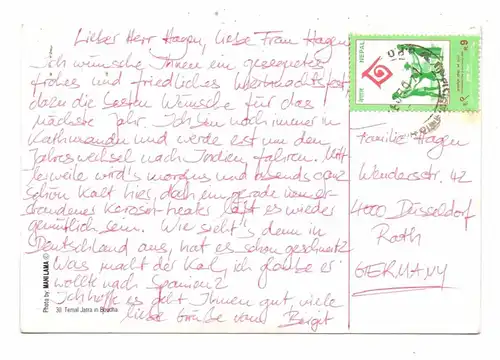 Lieber Herr Hagen, liebe Frau Hagen
Ich wünsche Ihnen ein gesegnetes
frohes und friedliches Weihnachtsfest
dazu die besten Wünsche für das
nächste Jahr. Ich bin noch immer in
Kathmandu und werde erst um den
Jahreswechsel nach Indien fahren. Mitt-
lerweile wird's morgens und abends ganz
schön kalt hier, doch ein gerade
Kerosin-heater läßt es wieder
gemütlich sein. Wie sieht's denn in
Deutschland aus, hat es schon geschneit?
Was macht der Karl, ich glaube er
wollte nach Spanien?
Ich hoffe es geht Ihnen gut, viele
liebe Grüße von Birgit
NEPAL
Familie Hagen
Wendersstr. 42
4000 Düsseldorf
Rath
GERMANY
Photo by: MANI LAMA ©
30 Temal Jatra in Boudha